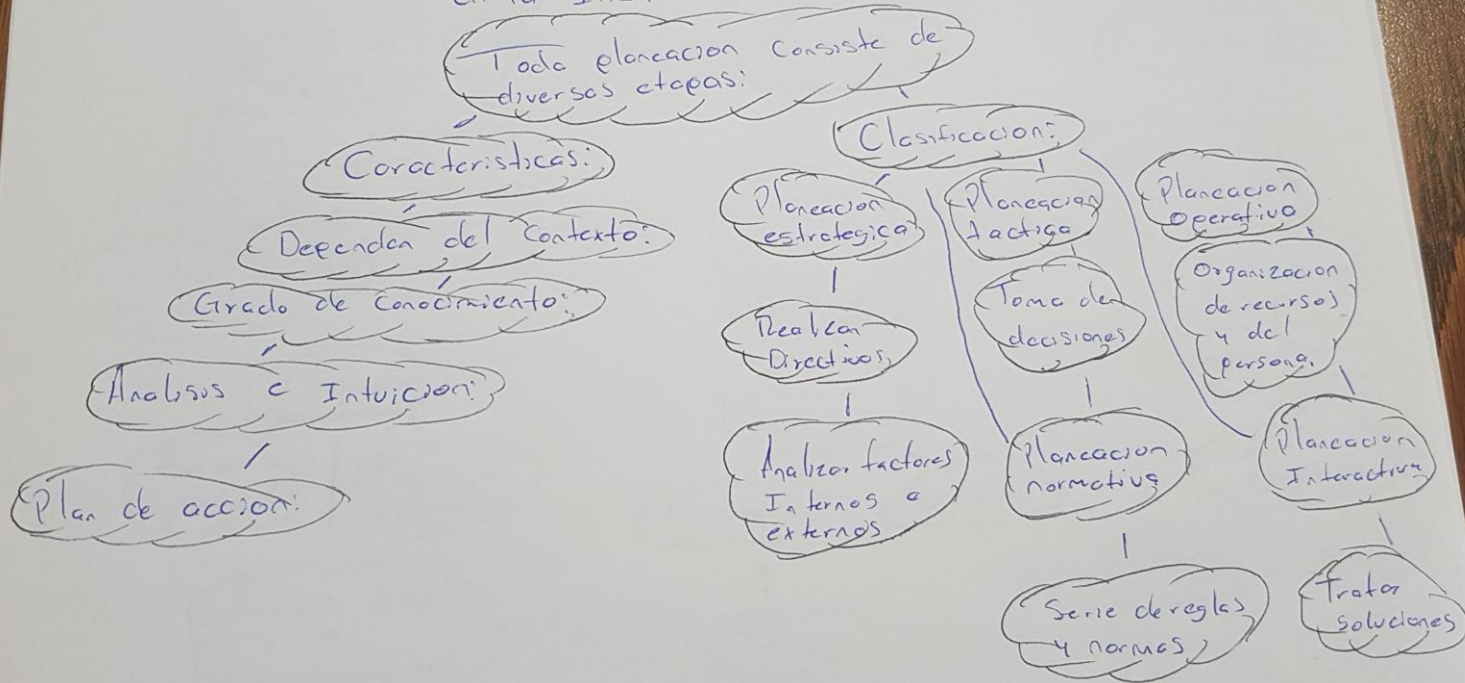 Toda planeacion consiste de
diversas etapas:
Caracteristicas:
Dependen del Contexto:
Grado de Conocimiento:
Analisis e Intuicion:
Plan de accion:
Clasificacion:
Planeacion
estrategica
Realizan
Directivos
Analizar factores
Internos e
externos
Planeacion
tactica
Toma de
decisiones
Planeacion
normativa
Serie de reglas
y normas
Planeacion
operativo
Organizacion
de recursos
y del
persona.
Planeacion
Interactiva
Tratar
soluciones